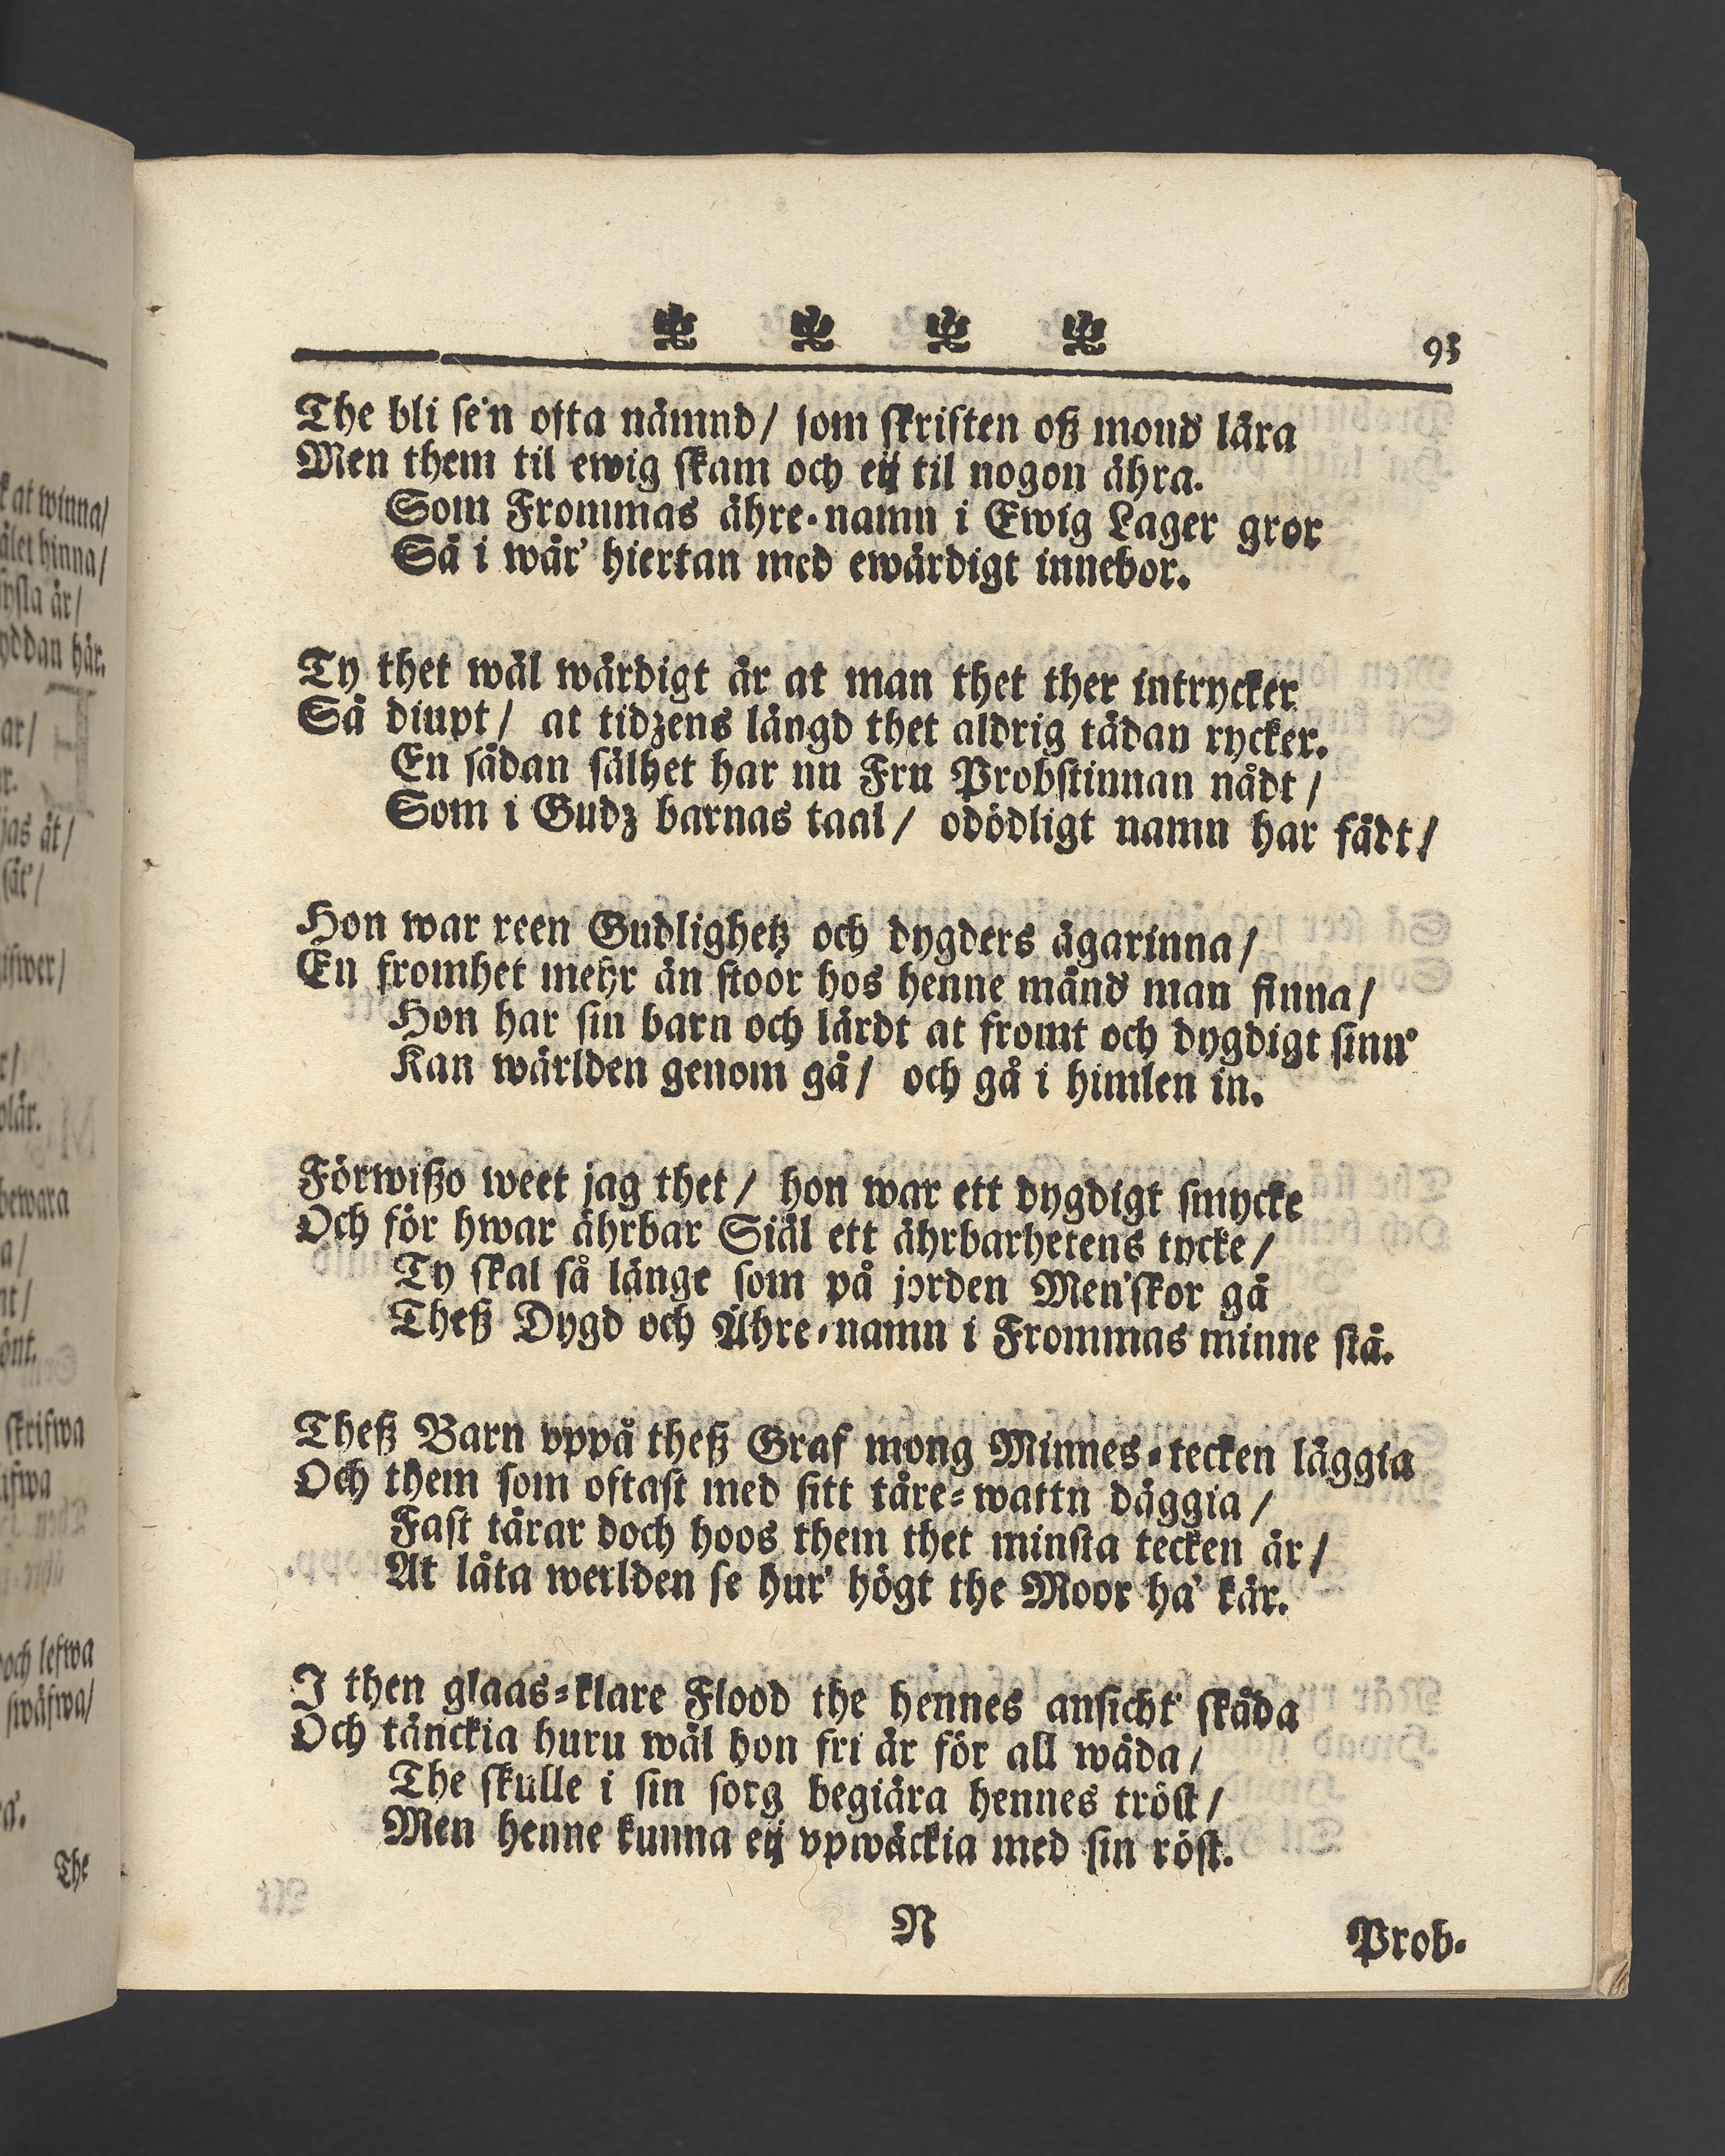 k at winna/
ålet hinna/
ysla är/
yddan här.
ar/
r.
jas åt/
sät'/
ifwer/
r/
plär.
bewara
a/
nt/
önt.
skrifwa
ifwa
och lefwa
swäfwa/
a'.
The
93
The bli se'n ofta nämnd/ som skriften oß mond' lära
Men them til ewig skam och eij til nogon ähra.
Som Frommas ähre-namn i Ewig Lager gror
Så i wår' hiertan med ewärdigt innebor.
Ty thet wäl wärdigt är at man thet ther intrycker
Så diupt/ at tidzens längd thet aldrig tådan rycker.
En sådan sälhet har nu Fru Probstinnan nådt/
Som i Gudz barnas taal/ odödligt namn har fådt/
Hon war reen Gudlighetz och dygders ägarinna/
En fromhet mehr än stoor hos henne månd' man finna/
Hon har sin barn och lärdt at fromt och dygdigt sinn'
Kan wärlden genom gå/ och gå i himlen in.
Förwißo weet jag thet/ hon war ett dygdigt smycke
Och för hwar ährbar Siäl ett ährbarhetens tycke/
Ty skal så länge som på jorden Men'skor gå
Theß Dygd och Ähre-namn i Frommas minne stå.
Theß Barn vppå theß Graf mong Minnes-tecken läggia
Och them som oftast med sitt tåre-wattn däggia/
Fast tårar doch hoos them thet minsta tecken är/
At låta werlden se hur' högt the Moor ha' kär.
I then glaas-klare Flood the hennes ansicht' skåda
Och tänckia huru wäl hon fri är för all wåda/
The skulle i sin sorg begiära hennes tröst/
Men henne kunna eij vpwäckia med sin röst.
N
Prob-